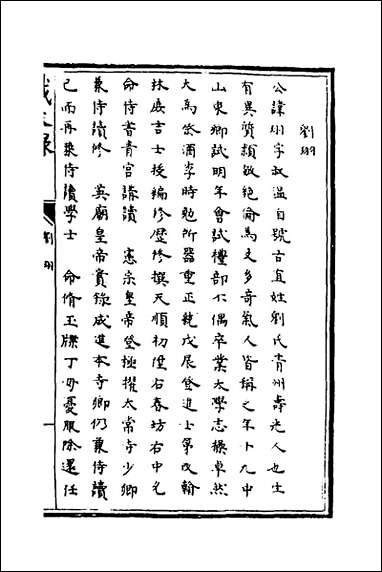 劉珝
公諱珝字叔温自號古直姓劉氏青州壽光人也生
有異質穎敏絶倫為文多奇氣人皆稱之年十九中
山東鄉試明年會試禮部不偶卒業太學志操卓然
大為祭酒李時勉所器重正統戊辰登進士第改翰
林庶吉士授編修歷修撰天順初陞右春坊右中允
命侍書青宮講讀　憲宗皇帝登極擢太常寺少卿
兼侍讀修　英廟皇帝實錄成進本寺卿仍兼侍讀
已而再兼侍讀學士　命脩玉牒丁母憂服除還任
劉珝
一